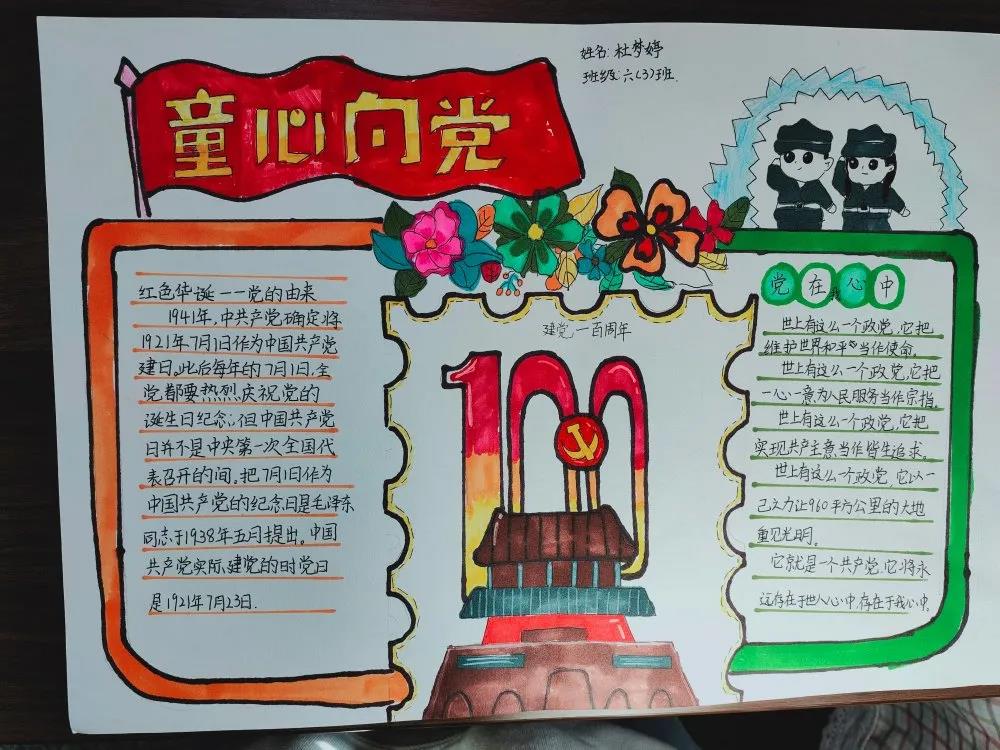 姓名:杜梦婷
班级:六(3)班.
童心向党
红色华诞——党的由来
1941年,中共产党确定将
1921年7月1日作为中国共产党
建日。此后每年的7月1日,全
党都要热烈庆祝党的
诞生日纪念,但中国共产党
日并不是中央第一次全国代
表召开的间。把7月1日作为
中国共产党的纪念日是毛泽东
同志于1938年五月提出。中国
共产党实际建党的时党日
是1921年7月23日.
建党一百周年
100
党在我心中
世上有这么一个政党,它把
维护世界和平当作使命.
世上有这么一个政党,它把
一心一意为人民服务当作宗指.
世上有这么一个政党,它把
实现共产主意当作皆生追求.
世上有这么一个政党,它以一
己之力让960平方公里的大地
重见光明.
它就是一个共产党.它将永
远存在于世人心中,存在于我心中.